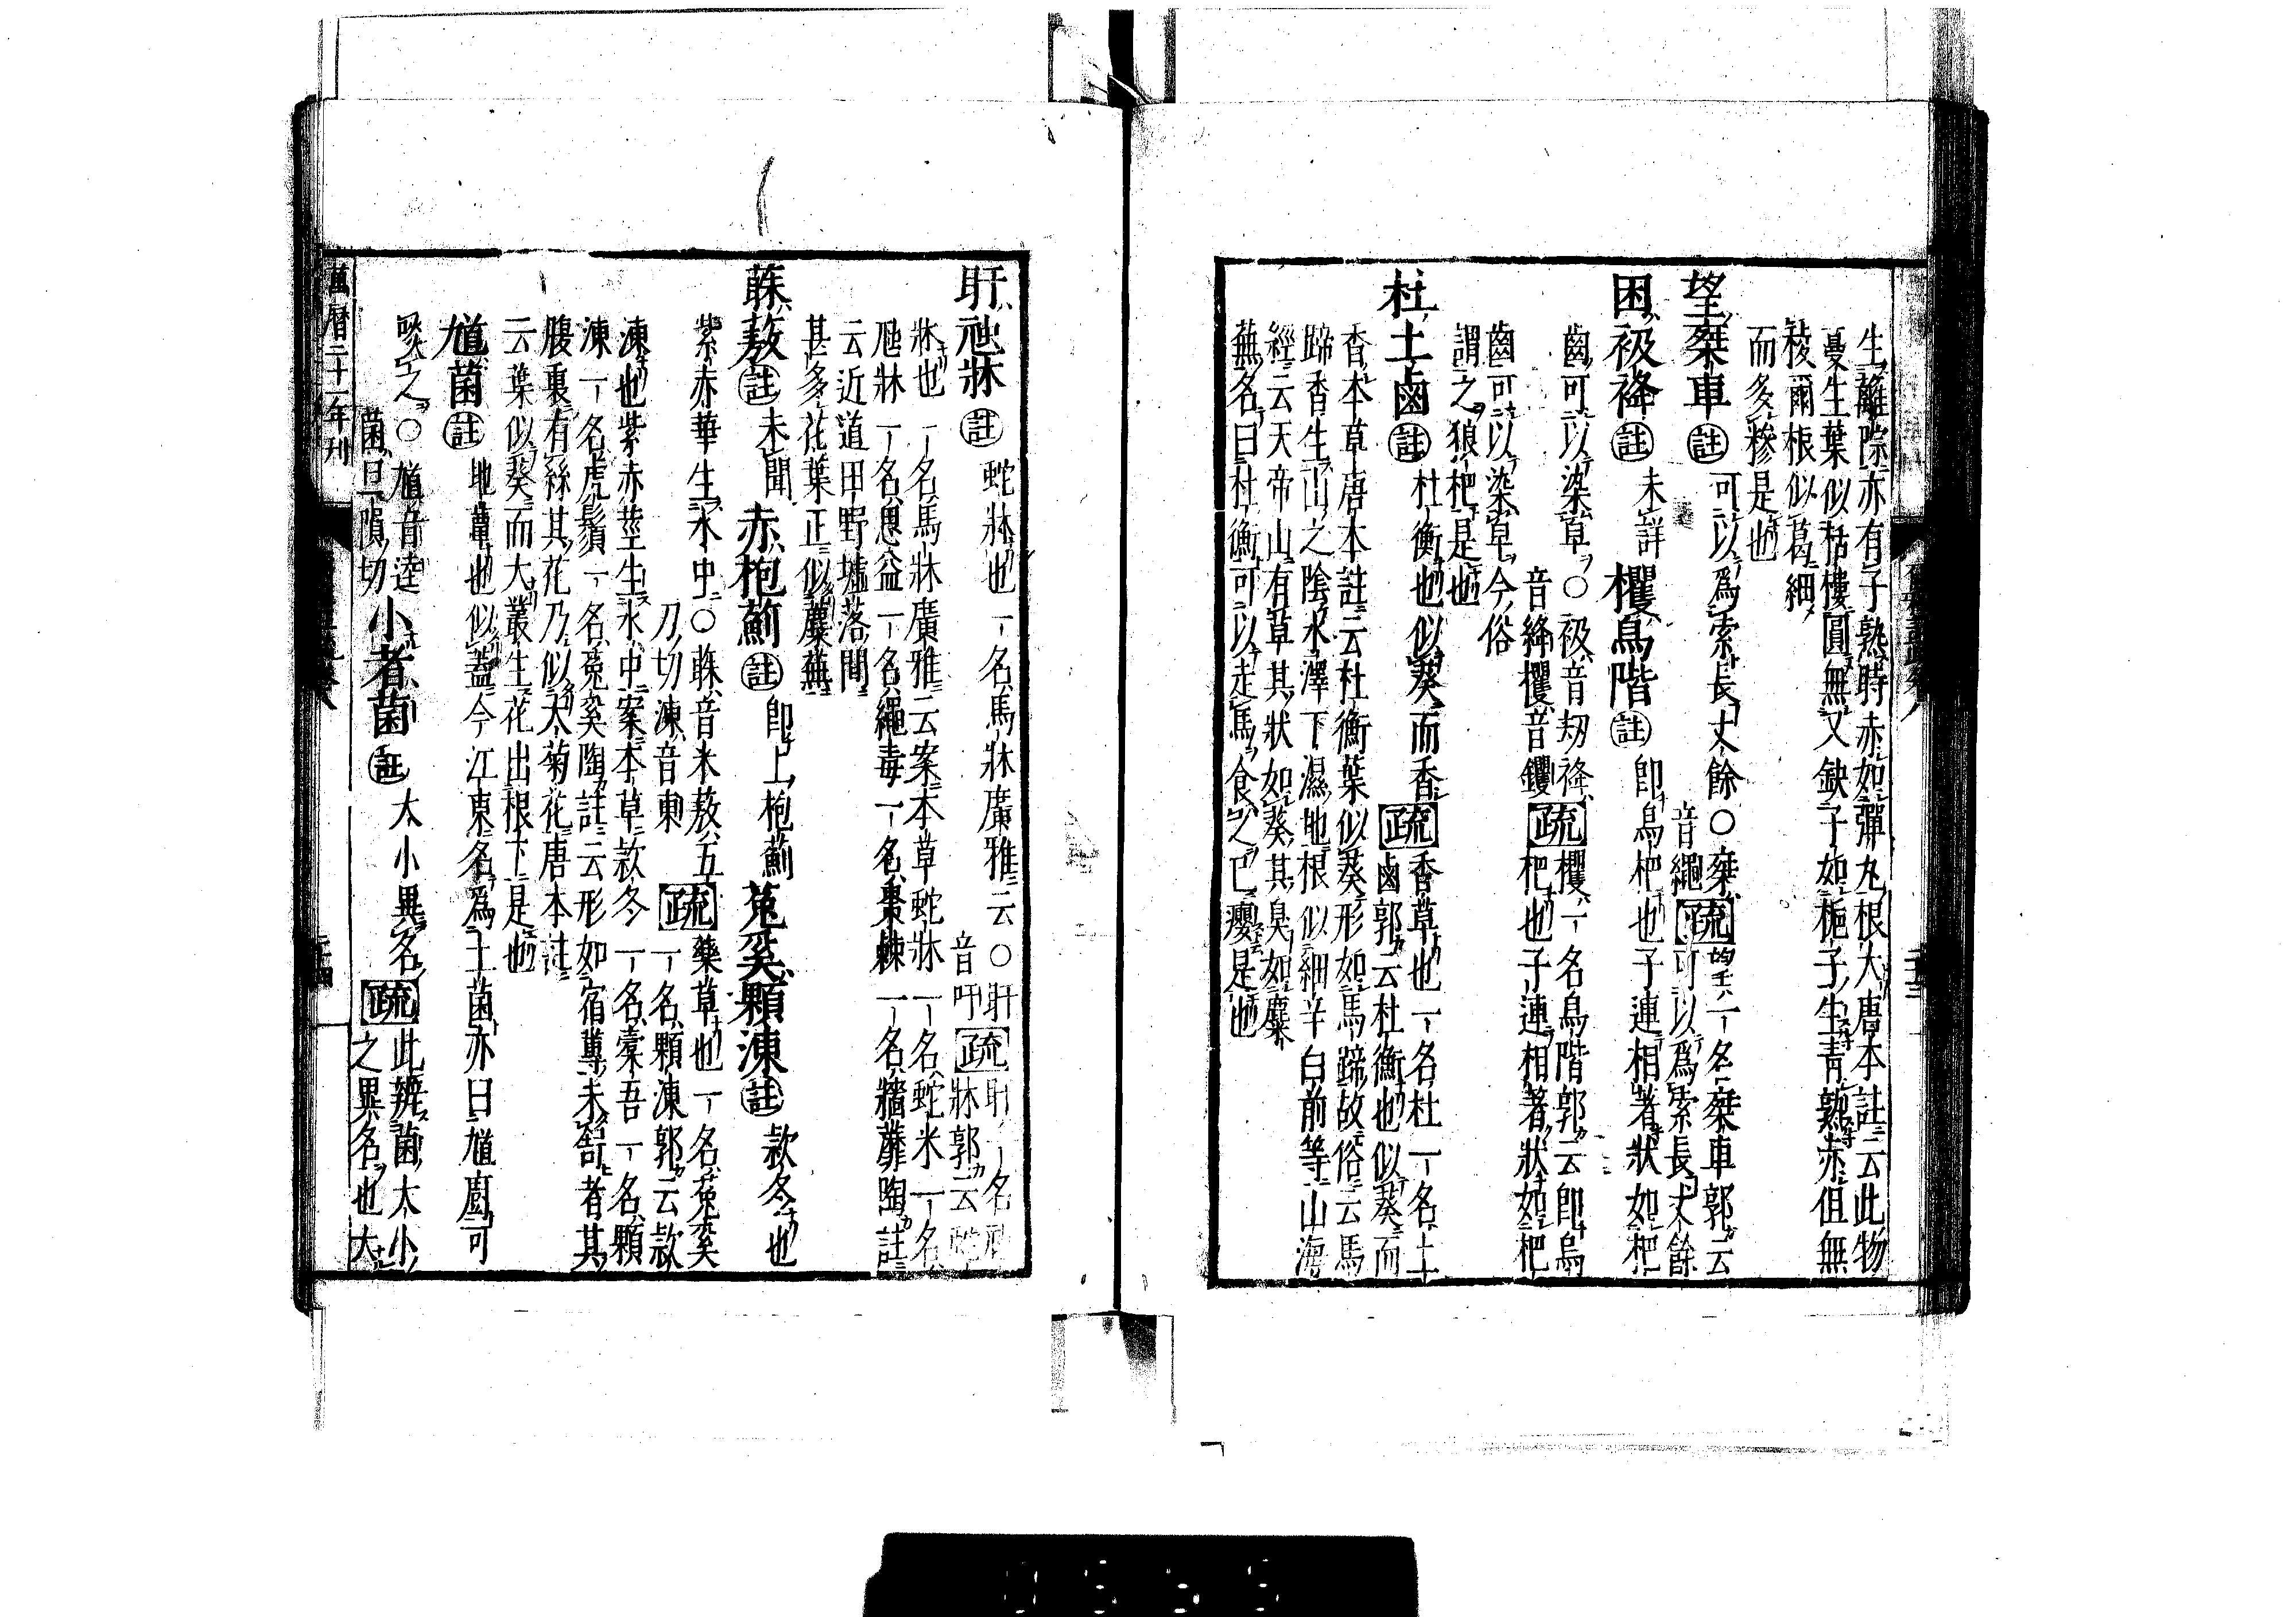 生籬院亦有子熟時赤如彈丸根大唐本註云此物
蔓生葉似栝樓圓無又缺子如梔子生青熟亦但無
稜爾根似葛細
而多糝是也
望椉車註可以爲索長丈餘○椉音繩疏望一名椉車郭云可以爲索長丈餘
困衱袶註未詳 欔烏階註即烏杷也子連相著狀如杷
齒可以染草○衱音刼袶音絳欔音钁疏欔一名烏階郭云即烏杷也子連相著狀如杷
齒可以染草今俗
謂之狼杷是也
杜土鹵註杜衡也似葵而香疏香草也一名杜一名土鹵郭云杜衡也似葵而
香本草唐本註云杜衡葉似葵形如馬蹄故俗云馬
蹄香生山之陰水澤下濕地根似細辛白前等山海
經云天帝山有草其狀如葵其臭如蘼
蕪名曰杜衡可以走馬食之已癭是也
盱虺牀註蛇牀也一名馬牀廣雅云○盱音吁疏盱一名虺牀郭云蛇
牀也一名馬牀廣雅云案本草蛇牀一名蛇米一名
虺牀一名思益一名繩毒一名棗棘一名牆蘼陶註
云近道田野墟落間
甚多花葉正似蘼蕪
蕀蔜註未聞 赤枹薊註即上枹薊 菟奚顆涷註款冬也
紫赤華生水中○蕀音米蔜五刀切涷音東疏藥草也一名菟奚一名顆涷郭云款
涷也紫赤莖生水中案本草款冬一名橐吾一名顆
涷一名虎鬚一名菟奚陶註云形如宿蓴未舒者其
腹裏有絲其花乃似大菊花唐本註
云葉似葵而大叢生花出根下是也
中馗菌註地蕈也似蓋今江東名爲土菌亦曰馗廚可
啖之○馗音逵菌巨隕切 小者菌註大小異名疏此辨菌大小之異名也大
萬曆二十一年刊